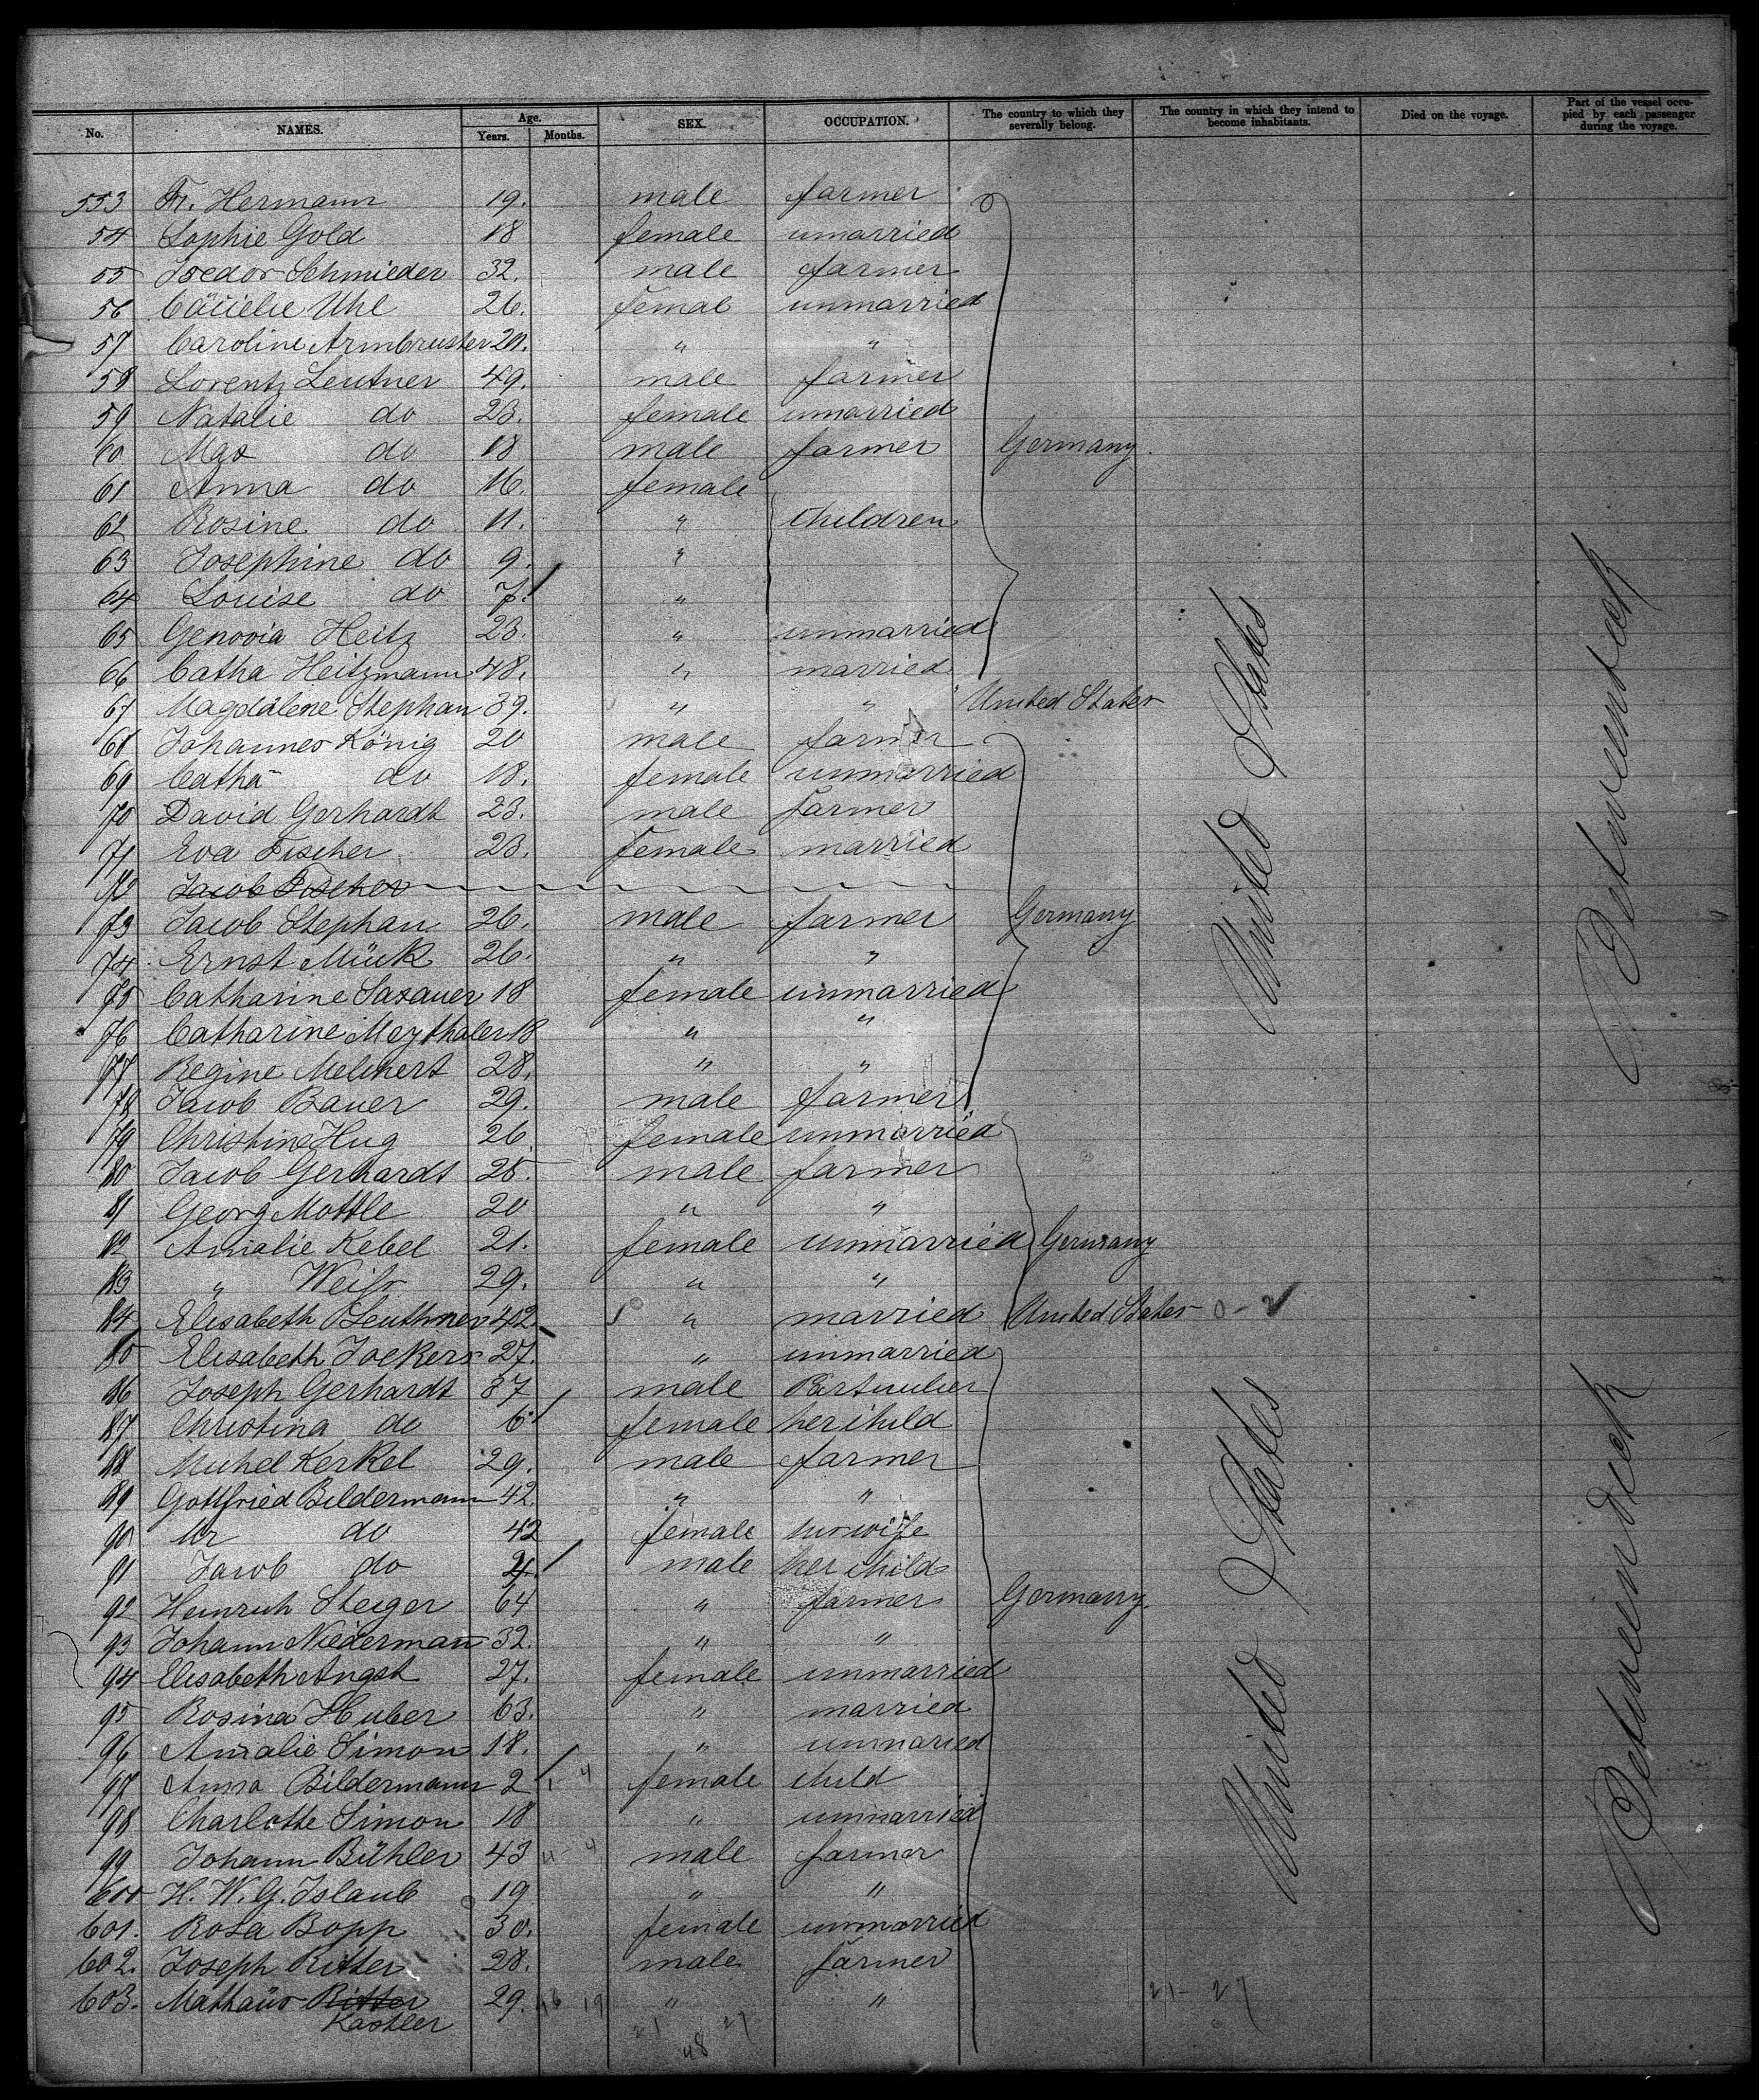 No. NAMES. Age. Years. Months. SEX. OCCUPATION. The country to which they severally belong. The country in which they intend to become inhabitants. Died on the voyage. Part of the vessel occupied by each passenger during the voyage.
553 Fr. Hermann 19. male farmer
54 Sophie Gold 18 female unmarried
55 Isedor Schmieder 32. male farmer
56 Cäcielie Uhl 26. femal unmarried
57 Caroline Armbruster " "
58 Lorentz Leutner 49. male farmer
59 Natalie do 23. female unmarried
60 Max do 18 male farmer Germany.
61 Anna do 16. female
62 Rosine do 11. " children
63 Josephine do 9. "
64 Louise do 7. "
65 Genovia Heitz 23. " unmarried
66 Catha Heitzmann 48. " married
67 Magdalene Stephan 39. " " United States
68 Johannes König 20 male farmer
69 Catha do 18. female unmarried
70 David Gerhardt 23. male farmer
71 Eva Fischer 23. female married
72 Jacob Fischer
73 Jacob Stephan 26. male farmer Germany
74 Ernst Mück 26. " "
75 Catharine Saxauer 18 female unmarried
76 Catharine Meythaler 18 " "
77 Regine Melchert 28. " "
78 Jacob Bauer 29. male farmer
79 Christine Hug 26. female unmarried
80 Jacob Gerhardt 25. male farmer
81 Georg Mottle 20 " "
82 Amalie Kebel 21. female unmarried Germany
83 " Weiss 29. " "
84 Elisabeth Beuthner 42 " married United States 0-2
85 Elisabeth Jockers 27. " unmarried
86 Joseph Gerhardt 37 male Particulier
87 Christina do 6 female her child
88 Michel Kerkel 29. male farmer
89 Gottfried Bildermann 42. " "
90 Ur do 42 female his wife
91 Jacob do male her child
92 Heinrich Steiger 64 " farmer Germany.
93 Johann Niedermann 32. " "
94 Elisabeth Angst 27. female unmarried
95 Rosina Huber 63. " married
96 Amalie Simon 18. " unmaried
97 Anna Bildermann 2 1-4 female child
98 Charlotte Simon 18 " unmarried
99 Johann Bühler 43 male farmer
600 H. W. G. Islaub 19 " "
601. Rosa Bopp 30. female unmarried
602. Joseph Ritter 28. male farmer
603. Mathäus Ritter 29. 16 19 " " 21-27
Kastler
21 27
48
United States
United States
Betweendeck
Betweendeck